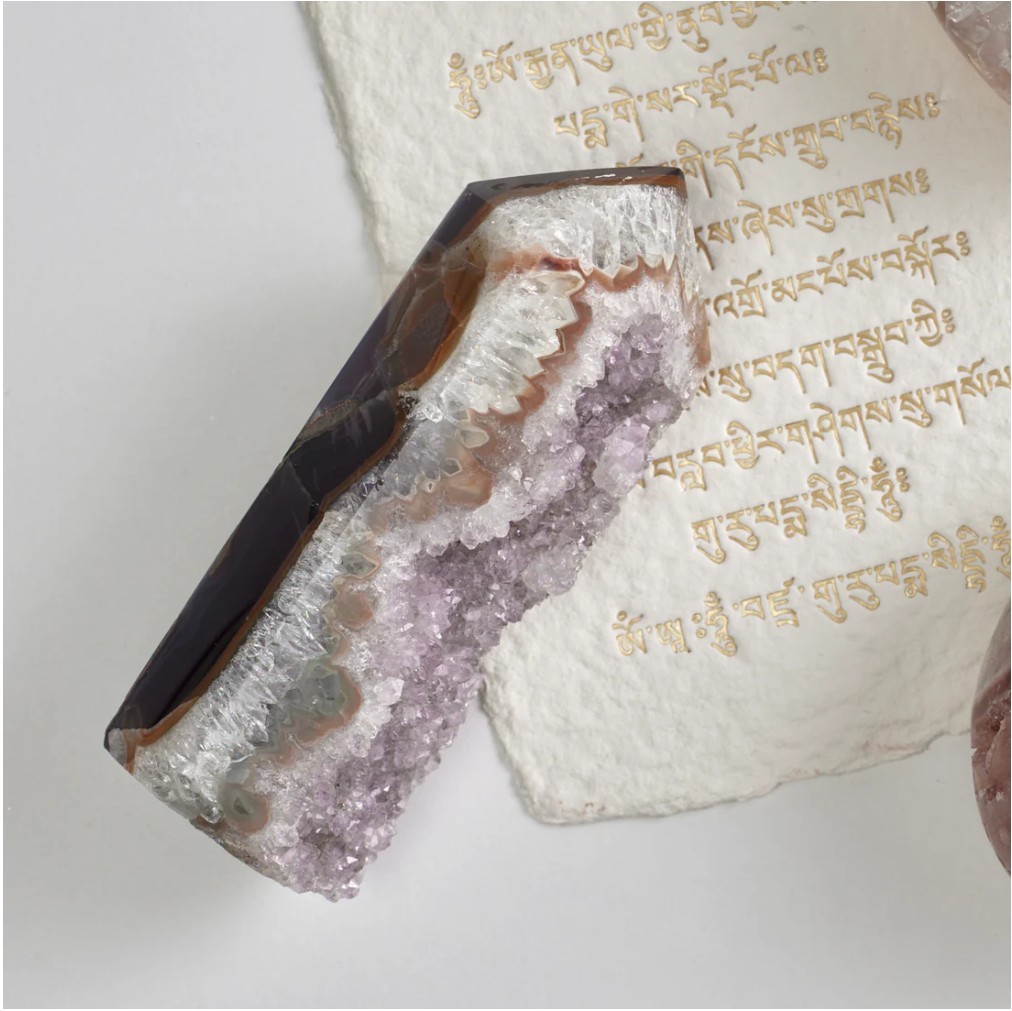 ཧཱུྃ༔ཨོ་རྒྱན་ཡུལ་གྱི་ནུབ་
པདྨ་གེ་སར་སྡོང་པོ་ལ༔
གི་དངོས་གྲུབ་བརྙེས༔
ཞེས་སུ་གྲགས༔
འགྲོ་མང་པོས་བསྐོར༔
སུ་བདག་བསྒྲུབ་ཀྱི༔
བརླབ་ཕྱིར་གཤེགས་སུ་གསོལ
གུ་རུ་པདྨ་སིདྡྷི་ཧཱུྃ༔
ཨོཾ་ཨཱཿཧཱུྃ་བཛྲ་གུ་རུ་པདྨ་སིདྡྷི་ཧཱུྃ